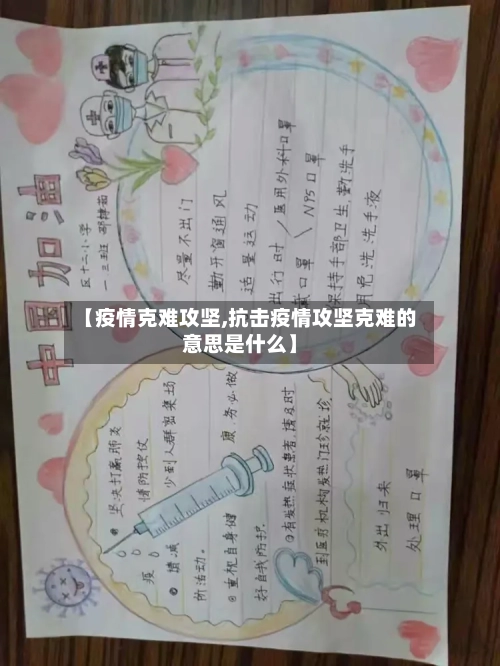 中国加油
区十二小学
一三班
尽量不出门
勤开窗通风
适量运动
出行时
医用外科口罩
戴口罩
N95口罩
保持手部卫生,勤洗手
用免洗洗手液
【疫情克难攻坚,抗击疫情攻坚克难的
意思是什么】
坚决打赢肺炎
疫情防控仗
减少到人群密集场
所活动。
重视自身健康,务必做
好自我防护
有发热症状患者请及时
到医疗机构发热门诊就诊
外出归来
处理口罩